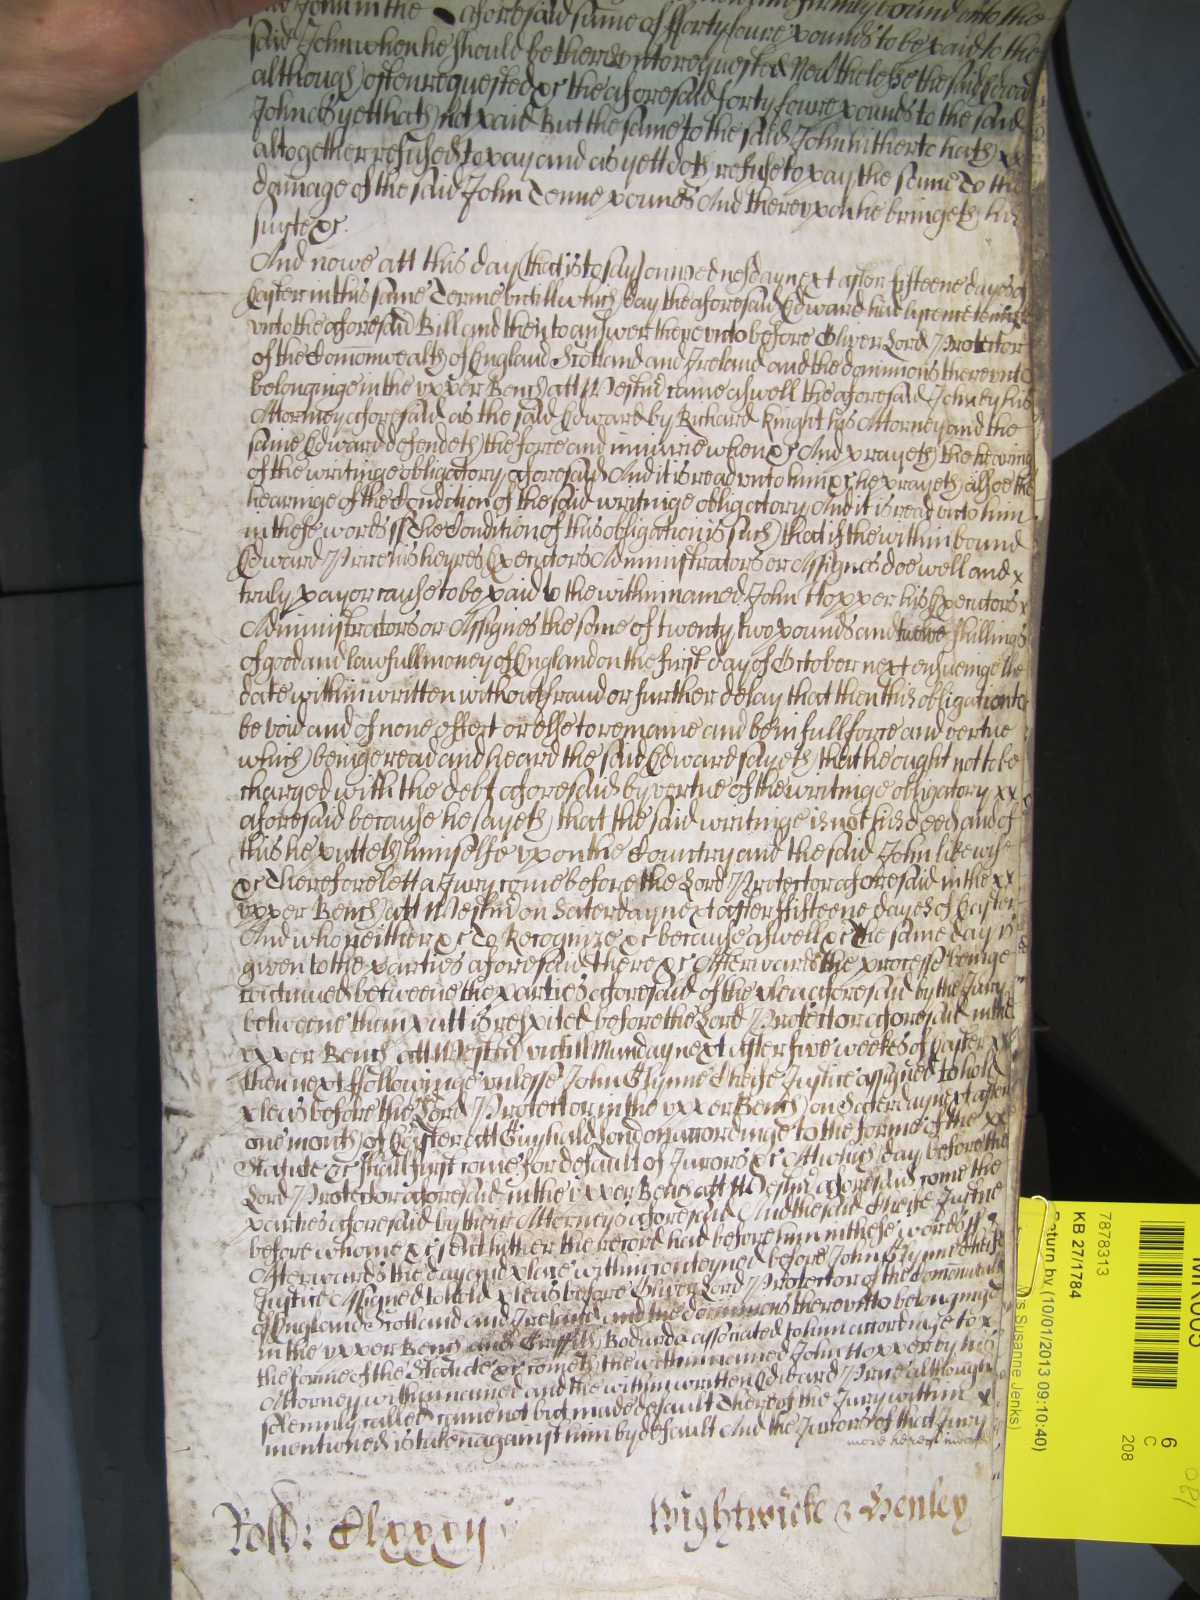 said John in the aforesaid some of fforty foure pounds to be paid to the
said John when he should be therevnto requested Neu'theles the said Edward
although often requested &c the aforesaid forty foure pounds to the said
John as yet hath not paid But the same to the said John hitherto hath xx
altogether refused to pay and as yett doth refuse to pay the same To the
damage of the said John Tenne pounds And therevpon he bringeth his
suyte &c
And nowe att this day (that is to say) on wednesday next after fifteene dayes of
Easter in this same Terme vntill which day the aforesaid Edward had lycence
vnto the aforesaid Bill and then to answer therevnto before Oliver Lord Protector
of the Comonwealth of England Scotland and Ireland and the dominions therevnto
belonginge in the vpper Bench att Westm' came aswell the aforesaid John by his
Attorney aforesaid as the said Edward by Richard Knight his Attorney and the
same Edward defendeth the force and iniurie when &c And prayeth the hearing
of the writinge obligatory aforesaid And it is read vnto him &c he prayeth alsoe the
hearinge of the Condition of the said writinge obligatory And it is read vnto him
in these words ss The Condition of this obligation is such that if the within bound
Edward Price his heyres Executors Administrators or Assignes doe well and x
truly pay or cause to be paid to the within named John Hopper his Executors x
Administrators or Assignes the some of twenty two pounds and twelve shillings
of good and lawfull money of England on the first day of October next ensueinge the
date within written without fraud or further delay that then this obligation to
be void and of none effect or else to remaine and be in full force and vertue
which beinge read and heard the said Edward sayeth that he ought not to be
charged with the debt aforesaid by vertue of the writinge obligatory xx
aforesaid because he sayeth that the said writinge is not his deed and of
this he putteth himselfe vpon the Country and the said John likewise
&c Therefore lett a Jury come before the Lord Protector aforesaid in the xx
vpper Bench att Westm' on Saterday next after ffifteene dayes of Easter
And who neither &c To Recognize &c because aswell &c the same day is
given to the parties aforesaid there &c Afterwards the processe beinge
continued betweene the parties aforesaid of the plea aforesaid by the Jury
betweene them putt is respited before the Lord Protector aforesaid in the
vpper Bench att Westm' vntill Munday next after five weekes of Easter xx
then next ffollowinge vnlesse John Glynne Cheife Justice assigned to hold
pleas before the Lord Protector in the vpper Bench on Saterday next after
one month of Easter att Guyhald London accordinge to the forme of the xx
Statute &c shall first come for default of Jurors &c Att which day before the
Lord Protector aforesaid in the vpper Bench att Westm' aforesaid come the
parties aforesaid by their Attorneys aforesaid And the said Cheife Justice
before whome &c sent hither the record had before him in these words ss
Afterwards the day and place within conteyned before John Glynne Cheife
Justice Assigned to hold pleas before Oliver Lord Protector of the Comonwealth
of England Scotland and Ireland and the dominions therevnto belonginge
in the vpper Bench and Griffith Bodurda associated to him accordinge to x
the forme of the Statute &c cometh the within named John Hopper by his
Attorney within named and the within written Edward Price although
solemnly called came not but made default Therefore the Jury within x
mentioned is taken against him by default And the Jurors of that Jury
Roll: Clxxxij
Wightwicke & Henley
MR003
6
C
208
7878313
KB 27/1784
Return by (10/01/2013 09:10:40)
Ms Susanne Jenks)